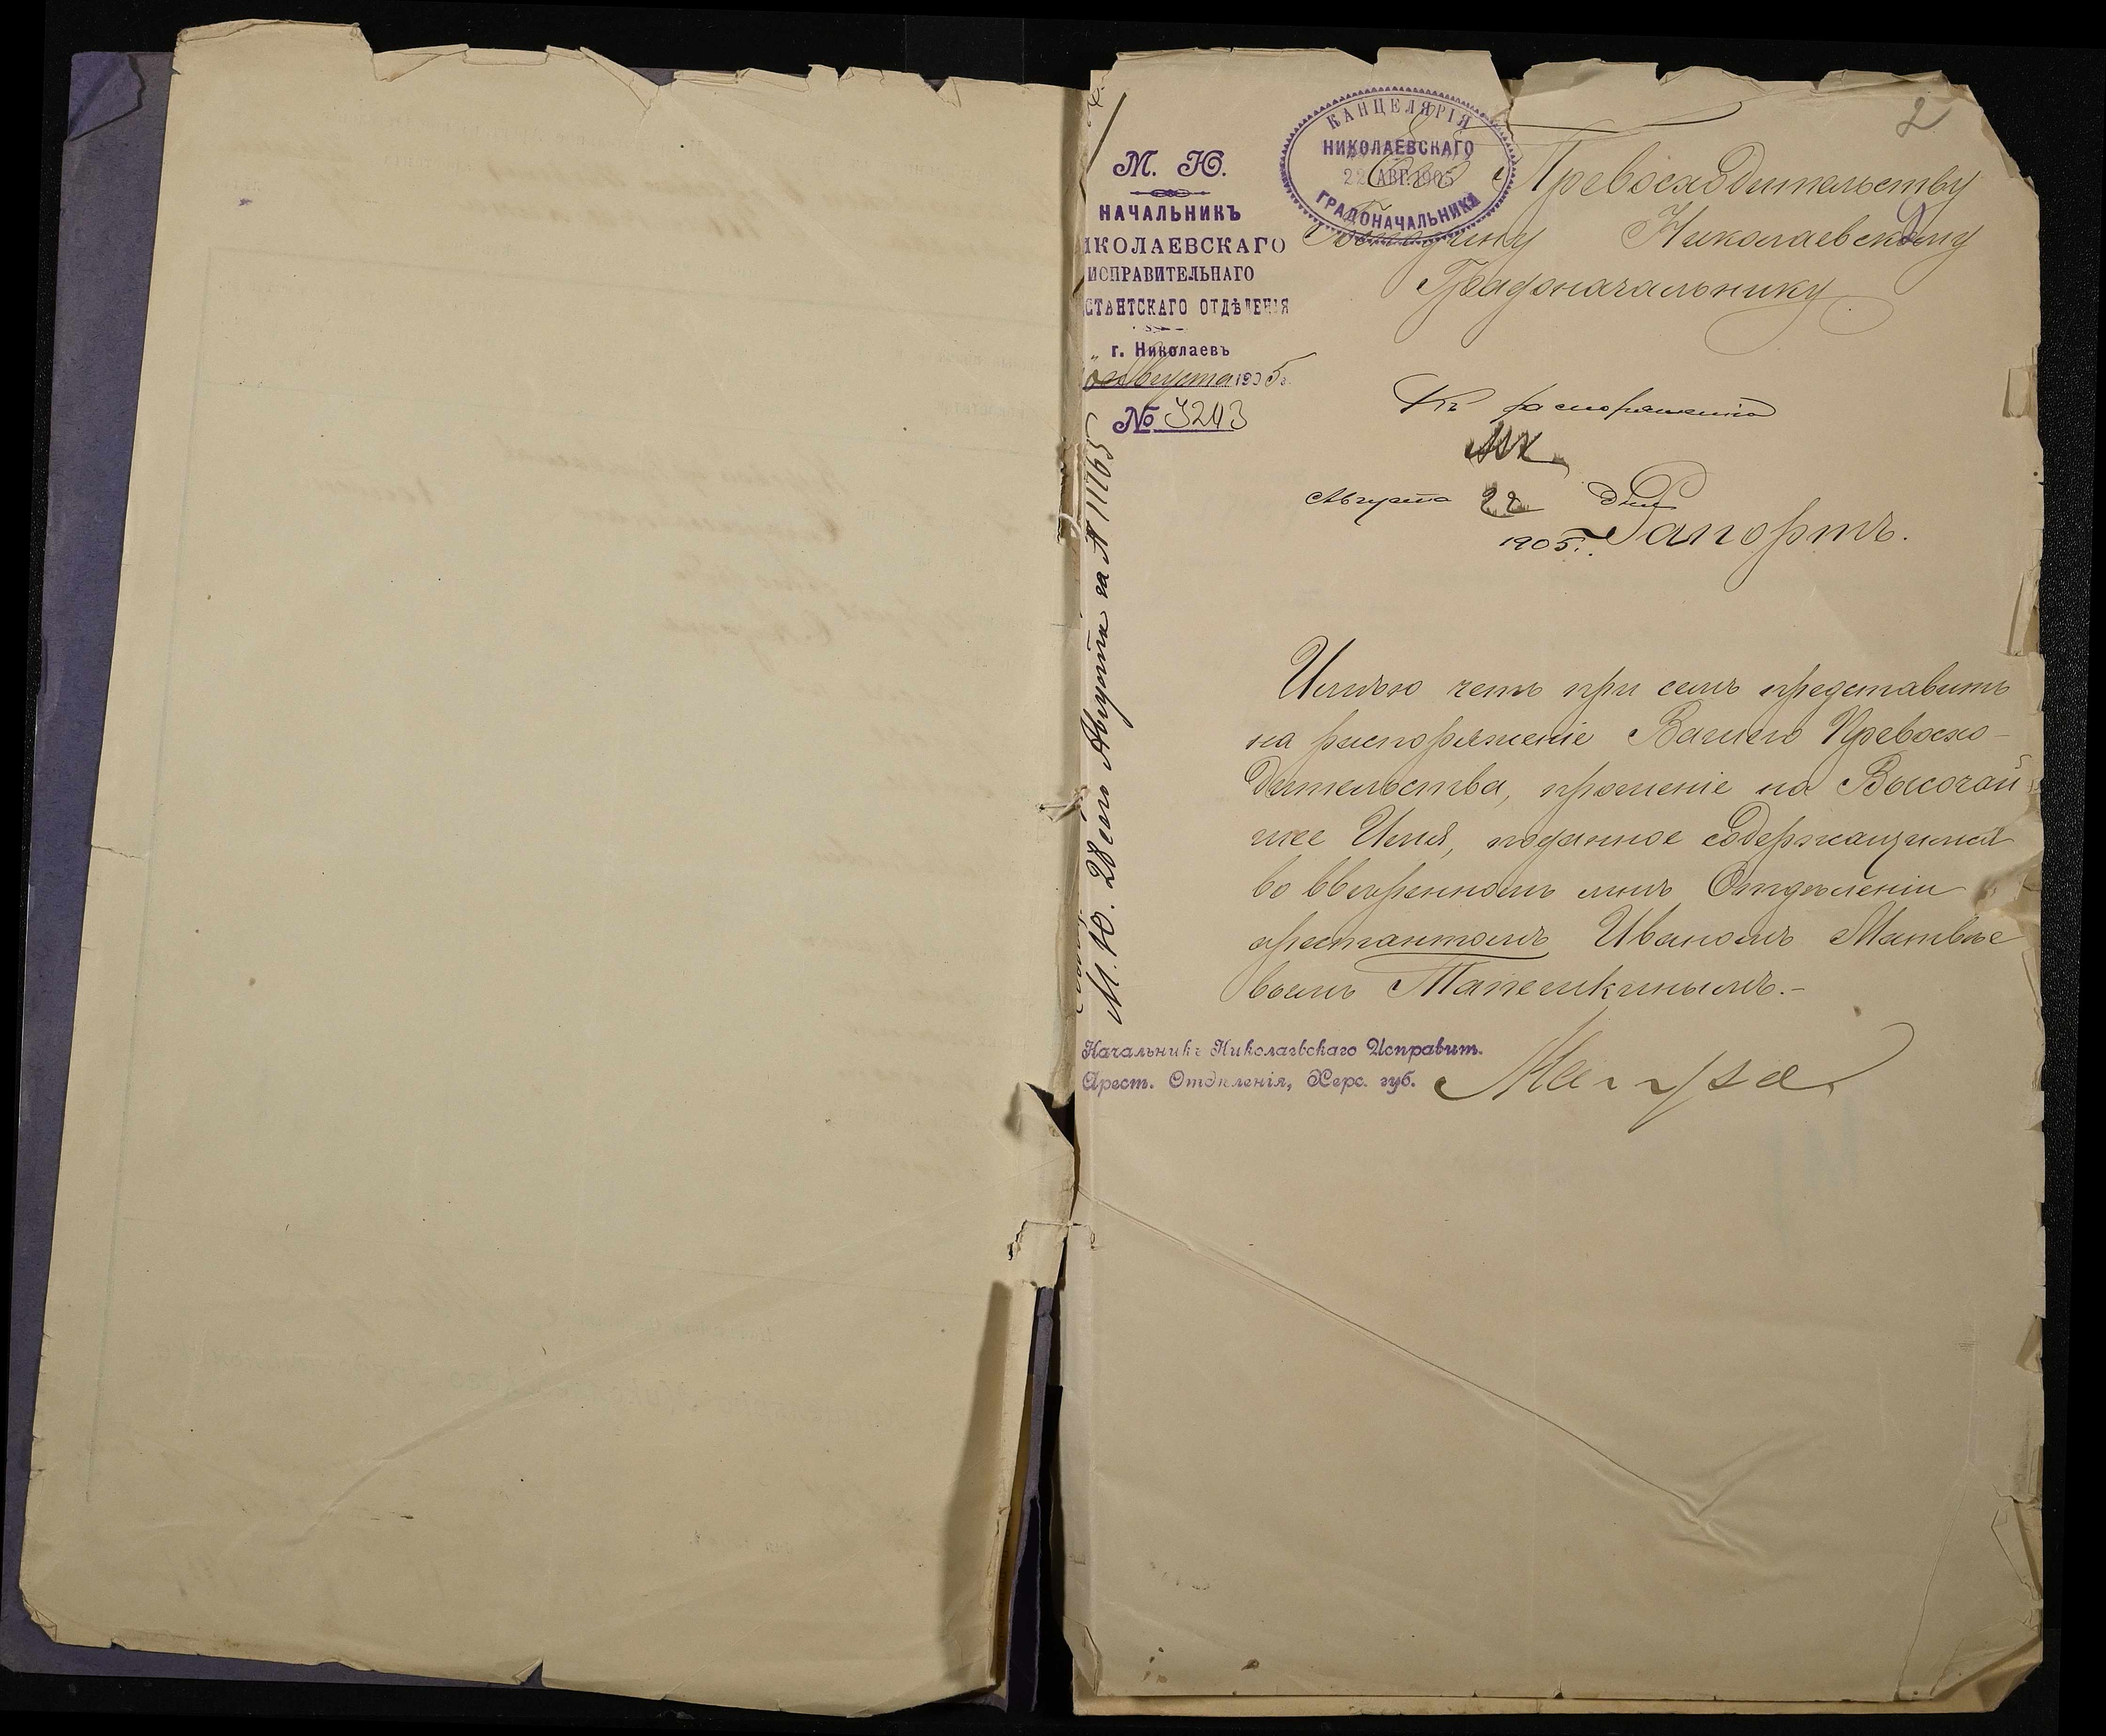 2
КАНЦЕЛЯРІЯ
НИКОЛАЕВСКАГО
22 АВГ. 1905
ГРАДОНАЧАЛЬНИКА
М. Ю.
НАЧАЛЬНИКЪ
ИКОЛАЕВСКАГО
ИСПРАВИТЕЛЬНАГО
СТАНТСКАГО ОТДѢЛЕНІЯ
г. Николаевъ
Августа 1905 г.
№ 3243
Его Превосходительству
Господину Николаевскому
Градоначальнику
Къ распоряженію
Августа 22 дня
1905 г.
Рапортъ.
Имѣю честь при семъ представить
на распоряженіе Вашего Превосхо-
дительства, прошеніе на Высочай
шее Имя, поданное содержащимся
во ввѣренномъ мнѣ Отдѣленіи
арестантомъ Иваномъ Матвѣе
вымъ Тапешкинымъ.-
Начальникъ Николаевскаго Исправит.
Арест. Отдѣленія, Херс. губ.
М. Ю. 28его Августа за № 11765